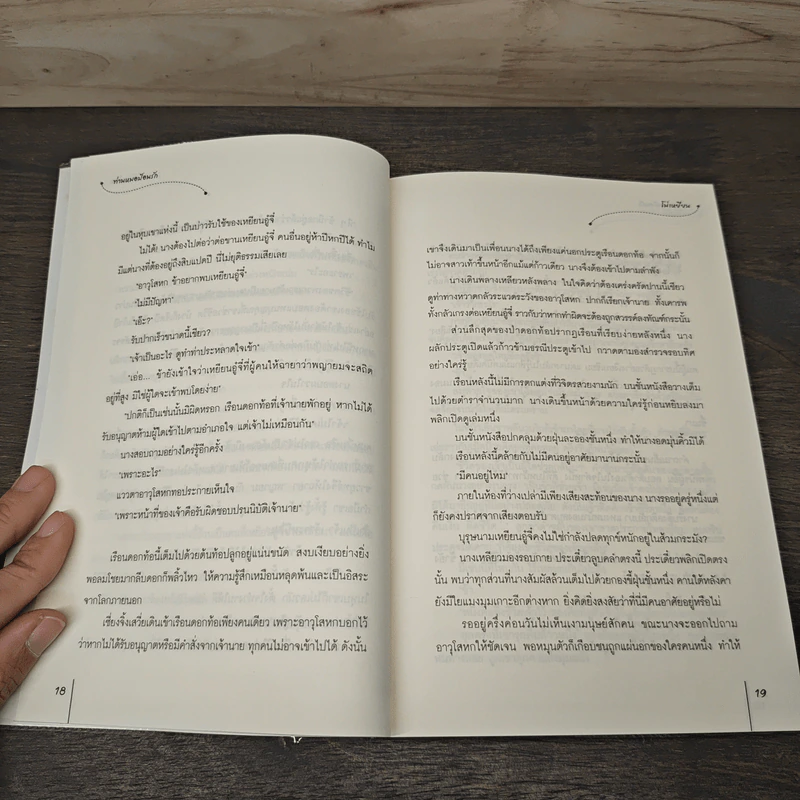 ท่านหมอป้อนรัก
อยู่ในหุบเขาแห่งนี้ เป็นบ่าวรับใช้ของเหยียนอู๋จี๋
ไม่ได้! นางต้องไปต่อว่าต่อขานเหยียนอู๋จี๋ คนอื่นอยู่ห้าปีหกปีได้ ทำไม
มีแต่นางที่ต้องอยู่ถึงสิบแปดปี นี่ไม่ยุติธรรมเสียเลย
"อาวุโสหก ข้าอยากพบเหยียนอู๋จี๋"
"ไม่มีปัญหา"
"เอ๊ะ?"
รับปากเร็วขนาดนี้เชียว?
"เจ้าเป็นอะไร ดูทำท่าประหลาดใจเข้า"
"เอ่อ... ข้ายังเข้าใจว่าเหยียนอู๋จี๋ที่ผู้คนให้ฉายาว่าพญายมจะสถิต
อยู่ที่สูง มิใช่ผู้ใดจะเข้าพบโดยง่าย"
"ปกติก็เป็นเช่นนั้นมิผิดหรอก เรือนดอกท้อที่เจ้านายพักอยู่ หากไม่ได้
รับอนุญาตห้ามผู้ใดเข้าไปตามอำเภอใจ แต่เจ้าไม่เหมือนกัน"
นางสอบถามอย่างใคร่รู้อีกครั้ง
"เพราะอะไร"
แววตาอาวุโสหกทอประกายเห็นใจ
"เพราะหน้าที่ของเจ้าคือรับผิดชอบปรนนิบัติเจ้านาย"
เรือนดอกท้อนี้เต็มไปด้วยต้นท้อปลูกอยู่แน่นขนัด สงบเงียบอย่างยิ่ง
พอลมโชยมากลีบดอกก็พลิ้วไหว ให้ความรู้สึกเหมือนหลุดพ้นและเป็นอิสระ
จากโลกภายนอก
เซี่ยงจิ้งเสวี่ยเดินเข้าเรือนดอกท้อเพียงคนเดียว เพราะอาวุโสหกบอกไว้
ว่าหากไม่ได้รับอนุญาตหรือมีคำสั่งจากเจ้านาย ทุกคนไม่อาจเข้าไปได้ ดังนั้น
18
โม่เหยียน
เขาจึงเดินมาเป็นเพื่อนนางได้ถึงเพียงแค่นอกประตูเรือนดอกท้อ จากนั้นก็
ไม่อาจสาวเท้าขึ้นหน้าอีกแม้แต่ก้าวเดียว นางจึงต้องเข้าไปตามลำพัง
นางเดินพลางเหลียวหลังพลาง ในใจคิดว่าต้องเคร่งครัดปานนี้เชียว
ดูท่าทางหวาดกลัวระแวดระวังของอาวุโสหก ปากก็เรียกเจ้านาย ทั้งเคารพ
ทั้งกลัวเกรงต่อเหยียนอู๋จี๋ ราวกับว่าหากทำผิดจะต้องถูกสวรรค์ลงทัณฑ์กระนั้น
ส่วนลึกสุดของป่าดอกท้อปรากฏเรือนที่เรียบง่ายหลังหนึ่ง นาง
ผลักประตูเปิดแล้วก้าวข้ามธรณีประตูเข้าไป กวาดตามองสำรวจรอบทิศ
อย่างใคร่รู้
เรือนหลังนี้ไม่มีการตกแต่งที่วิจิตรสวยงามนัก บนชั้นหนังสือวางเต็ม
ไปด้วยตำราจำนวนมาก นางเดินขึ้นหน้าด้วยความใคร่รู้ก่อนหยิบลงมา
พลิกเปิดดูเล่มหนึ่ง
บนชั้นหนังสือปกคลุมด้วยฝุ่นละอองชั้นหนึ่ง ทำให้นางอดมุ่นคิ้วมิได้
เรือนหลังนี้คล้ายกับไม่มีคนอยู่อาศัยมานานกระนั้น
"มีคนอยู่ไหม"
ภายในห้องที่ว่างเปล่ามีเพียงเสียงสะท้อนของนาง นางรออยู่ครู่หนึ่งแต่
ก็ยังคงปราศจากเสียงตอบรับ
บุรุษนามเหยียนอู๋จี๋คงไม่ใช่กำลังปลดทุกข์หนักอยู่ในส้วมกระมัง?
นางเหลียวมองรอบกาย ประเดี๋ยวลูบคลำตรงนี้ ประเดี๋ยวพลิกเปิดตรง
นั้น พบว่าทุกส่วนที่นางสัมผัสล้วนเต็มไปด้วยกองขี้ฝุ่นชั้นหนึ่ง คานใต้หลังคา
ยังมีใยแมงมุมเกาะอีกต่างหาก ยิ่งคิดยิ่งสงสัยว่าที่นี่มีคนอาศัยอยู่หรือไม่
รออยู่ครึ่งค่อนวันไม่เห็นเงามนุษย์สักคน ขณะนางจะออกไปถาม
อาวุโสหกให้ชัดเจน พอหมุนตัวก็เกือบชนถูกแผ่นอกของใครคนหนึ่ง ทำให้
19